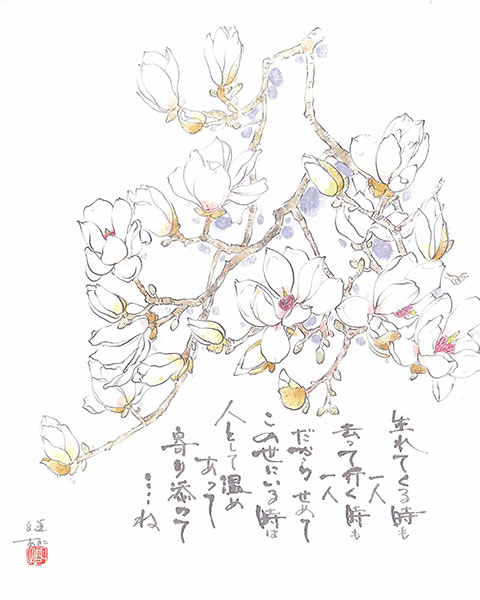 生れてくる時も
一人
去って行く時も
一人
だから せめて
この世にいる時は
人として温め
あって
寄り添って
……ね
白蓮